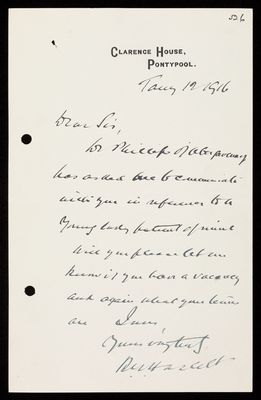 526
CLARENCE HOUSE,
PONTYPOOL.
Jany 12 1916
Dear Sir,
Dr Phillips of Abergavenny
has asked me to communicate
with you in reference to a
young lady patient of mine
Will you please let me
know if you have a vacancy
and again what your terms
are
Yours